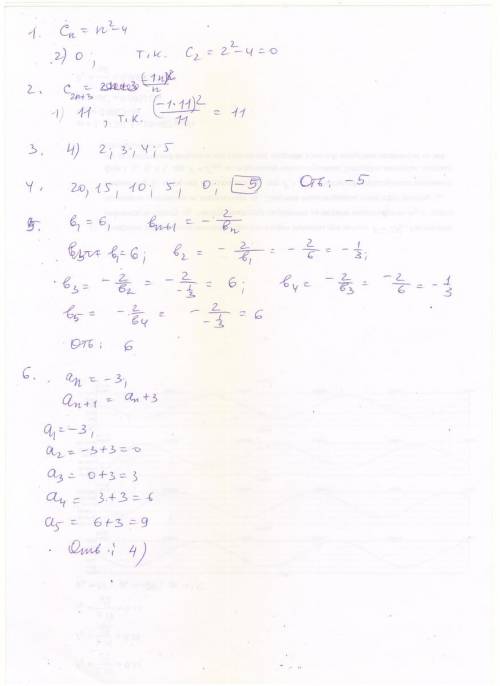 1. Cn = n²-4
2) 0; т.к. C2 = 2²-4=0
2. C2n+3 = (-1n)²/n
1) 11, т.к. (-1·11)²/11 = 11
3. 4) 2; 3; 4; 5
4. 20, 15, 10; 5, 0; -5 Отв: -5
5. в1 = 6, вn+1 = -2/вn
в1 = 6; в2 = -2/в1 = -2/6 = -1/3;
в3 = -2/в2 = -2/-1/3 = 6; в4 = -2/в3 = -2/6 = -1/3
в5 = -2/в4 = -2/-1/3 = 6
Отв: 6
6. an = -3,
an+1 = an+3
a1 = -3,
a2 = -3+3=0
a3 = 0+3=3
a4 = 3+3=6
a5 = 6+3=9
Отв: 4)